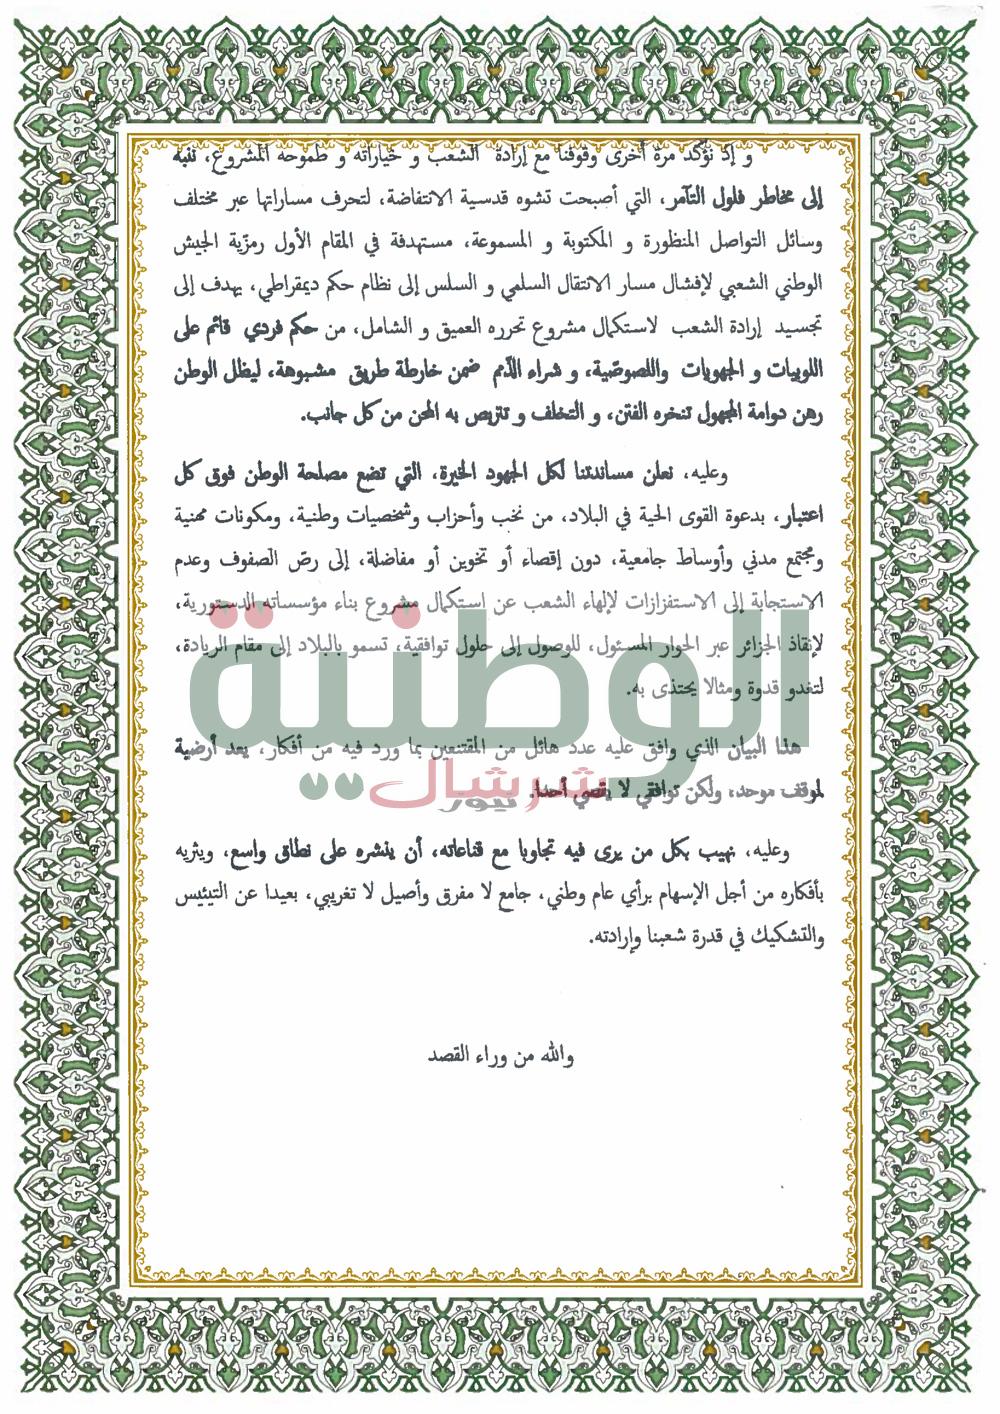 و إذ نؤكد مرة أخرى وقوفنا مع إرادة الشعب و خياراته و طموحه المشروع، ننبه
إلى مخاطر فلول التآمر، التي أصبحت تشوه قدسية الانتفاضة، لتحرف مساراتها عبر مختلف
وسائل التواصل المنظورة و المكتوبة و المسموعة، مستهدفة في المقام الأول رمزية الجيش
الوطني الشعبي لإفشال مسار الانتقال السلمي و السلس إلى نظام حكم ديمقراطي، يهدف إلى
تجسيد إرادة الشعب لاستكمال مشروع تحرره العميق و الشامل، من حكم فردي قائم على
اللوبيات و الجهويات واللصوصّية، و شراء الذّمم ضمن خارطة طريق مشبوهة، ليظل الوطن
رهن دوامة المجهول تنخره الفتن، و التخلف و تتربص به المحن من كل جانب.
وعليه، نعلن مساندتنا لكل الجهود الخيرة، التي تضع مصلحة الوطن فوق كل
اعتبار، بدعوة القوى الحية في البلاد، من نخب وأحزاب وشخصيات وطنية، ومكونات مهنية
ومجتمع مدني وأوساط جامعية، دون إقصاء أو تخوين أو مفاضلة، إلى رصّ الصفوف وعدم
الاستجابة إلى الاستفزازات لإلهاء الشعب عن استكمال مشروع بناء مؤسساته الدستورية،
لإنقاذ الجزائر عبر الحوار المسئول، للوصول إلى حلول توافقية، تسمو بالبلاد إلى مقام الريادة،
لتغدو قدوة ومثالا يحتذى به.
الوطنية
هذا البيان الذي وافق عليه عدد هائل من المقتنعين بما ورد فيه من أفكار، يعد أرضية
لموقف موحد، ولكن توافقي لا يقصي أحدا.
شرشال نيوز
وعليه، نهيب بكل من يرى فيه تجاوبا مع قناعاته، أن ينشره على نطاق واسع، ويثريه
بأفكاره من أجل الإسهام برأي عام وطني، جامع لا مفرق وأصيل لا تغريبي، بعيدا عن التيئيس
والتشكيك في قدرة شعبنا وإرادته.
والله من وراء القصد